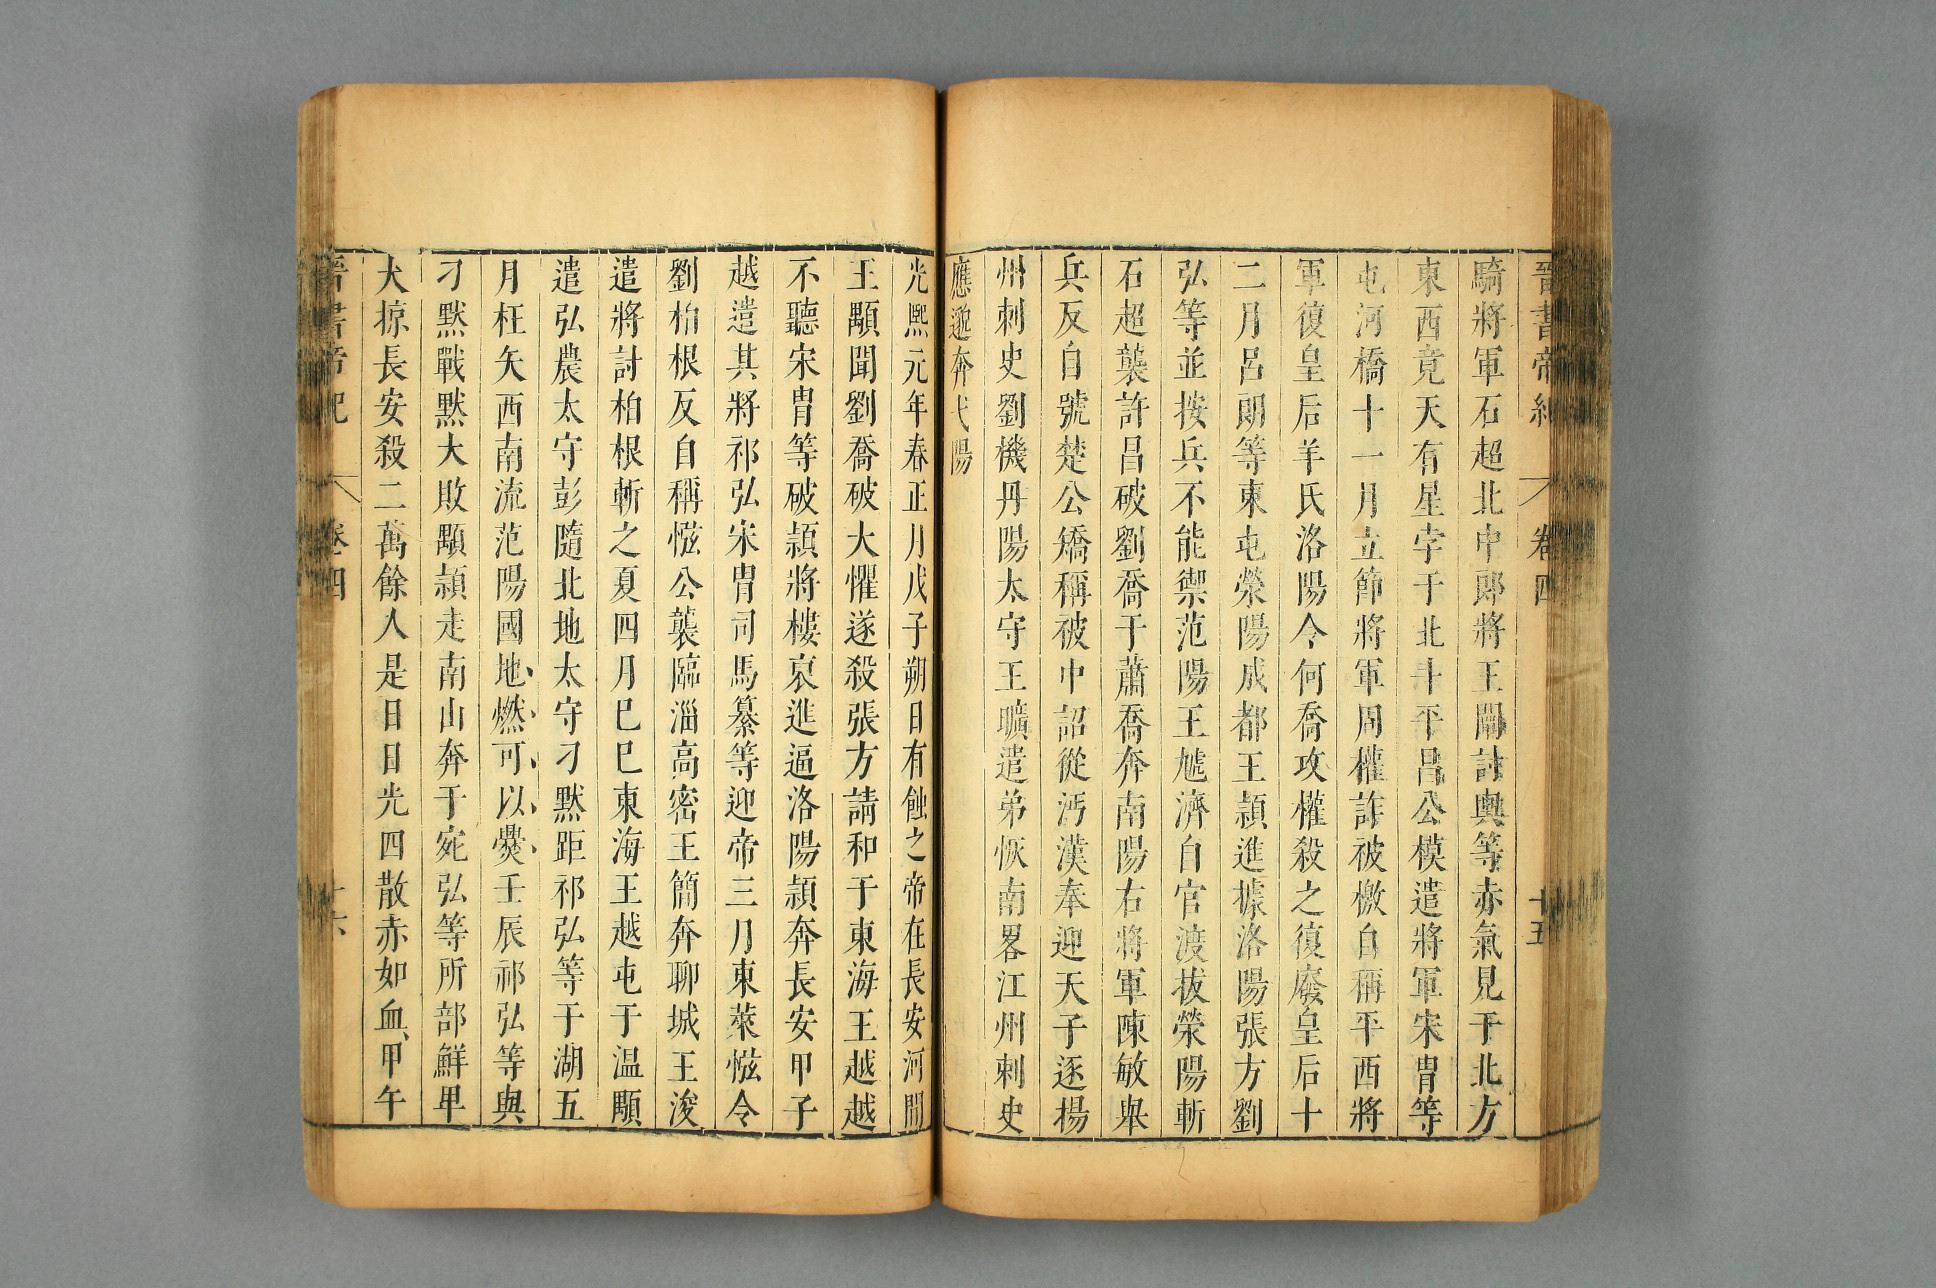 晉書帝紀 卷四 十五
騎將軍石超北中郎將王闡討輿等赤氣見于北方
東西竟天有星孛于北斗平昌公模遣將軍宋胄等
屯河橋十一月立節將軍周權詐被檄自稱平西將
軍復皇后羊氏洛陽令何喬攻權殺之復廢皇后十
二月呂朗等東屯滎陽成都王頴進據洛陽張方劉
弘等並按兵不能禦范陽王虓濟自官渡拔滎陽斬
石超襲許昌破劉喬于蕭喬奔南陽右將軍陳敏舉
兵反自號楚公矯稱被中詔從沔漢奉迎天子逐揚
州刺史劉機丹陽太守王曠遣弟恢南畧江州刺史
應邈奔弋陽
光熙元年春正月戊子朔日有蝕之帝在長安河間
王顒聞劉喬破大懼遂殺張方請和于東海王越越
不聽宋胄等破頴將樓裒進逼洛陽頴奔長安甲子
越遣其將祁弘宋胄司馬纂等迎帝三月東萊惤令
劉柏根反自稱惤公襲臨淄高密王簡奔聊城王浚
遣將討柏根斬之夏四月己巳東海王越屯于温顒
遣弘農太守彭隨北地太守刁默距祁弘等于湖五
月枉矢西南流范陽國地燃可以爨壬辰祁弘等與
刁默戰默大敗顒頴走南山奔于宛弘等所部鮮卑
大掠長安殺二萬餘人是日日光四散赤如血甲午
晉書帝紀 卷四 十六